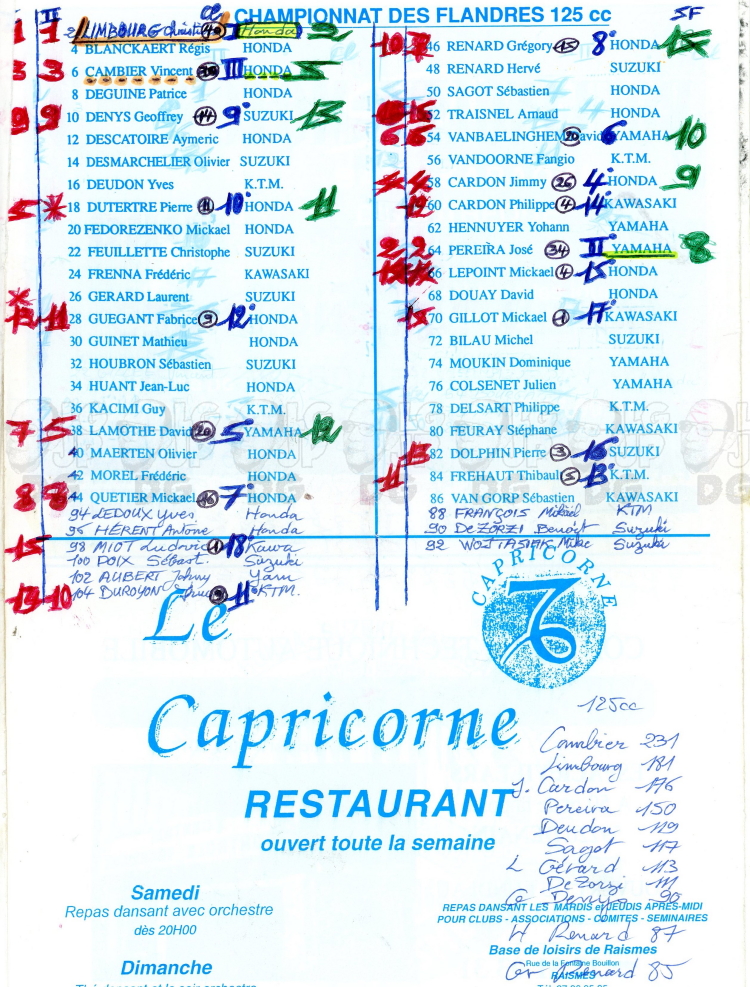 CHAMPIONNAT DES FLANDRES 125 cc
SF
1 1 2 LIMBOURG Christ I Honda
4 BLANCKAERT Régis HONDA
3 3 6 CAMBIER Vincent III HONDA 5
8 DEGUINE Patrice HONDA
9 9 10 DENYS Geoffrey 14 9° SUZUKI 13
12 DESCATOIRE Aymeric HONDA
14 DESMARCHELIER Olivier SUZUKI
16 DEUDON Yves K.T.M.
5 * 18 DUTERTRE Pierre 11 10° HONDA 11
20 FEDOREZENKO Mickael HONDA
22 FEUILLETTE Christophe SUZUKI
24 FRENNA Frédéric KAWASAKI
* 26 GERARD Laurent SUZUKI
11 28 GUEGANT Fabrice 9 12° HONDA
30 GUINET Mathieu HONDA
32 HOUBRON Sébastien SUZUKI
34 HUANT Jean-Luc HONDA
36 KACIMI Guy K.T.M.
7 5 38 LAMOTHE David 20 5 YAMAHA 12
40 MAERTEN Olivier HONDA
42 MOREL Frédéric HONDA
8 8 44 QUETIER Mickael 16 7° HONDA
94 LEDOUX Yves Honda
96 HÉRENT Antoine Honda
15 98 MIOT Ludovic 18° Kawa
100 DOIX Sébast. Suzuki
102 AUBERT Johny Yam
13 10 104 DUROYON 9 11° KTM.
10 46 RENARD Grégory 15 8° HONDA
48 RENARD Hervé SUZUKI
50 SAGOT Sébastien HONDA
15 52 TRAISNEL Arnaud HONDA
6 6 54 VANBAELINGHEM David 20 6 YAMAHA 10
56 VANDOORNE Fangio K.T.M.
4 4 58 CARDON Jimmy 26 4° HONDA 9
12 60 CARDON Philippe 4 14° KAWASAKI
62 HENNUYER Yohann YAMAHA
2 2 64 PEREIRA José 34 II YAMAHA 8
66 LEPOINT Mickael 4 15° HONDA
68 DOUAY David HONDA
70 GILLOT Mickael 1 17° KAWASAKI
72 BILAU Michel SUZUKI
74 MOUKIN Dominique YAMAHA
76 COLSENET Julien YAMAHA
78 DELSART Philippe K.T.M.
80 FEURAY Stéphane KAWASAKI
13 82 DOLPHIN Pierre 3 16° SUZUKI
11 84 FREHAUT Thibaul 5 13° K.T.M.
86 VAN GORP Sébastien KAWASAKI
88 FRANÇOIS Mikaël KTM
90 DeZORZI Benoit Suzuki
92 WOJTASIAK Mike Suzuki
CAPRICORNE
76
Le
Capricorne
RESTAURANT
ouvert toute la semaine
125cc
Cambier 231
Limbourg 181
J. Cardon 176
Pereira 150
Deudon 119
Sagot 117
L Gérard 113
DeZorzi 111
Ge Denys 90
H Renard 87
Gr Renard 85
Samedi
Repas dansant avec orchestre
dès 20H00
Dimanche
REPAS DANSANT LES MARDIS et JEUDIS APRÈS-MIDI
POUR CLUBS - ASSOCIATIONS - COMITES - SEMINAIRES
Base de loisirs de Raismes
Rue de la Fontaine Bouillon
RAISMES